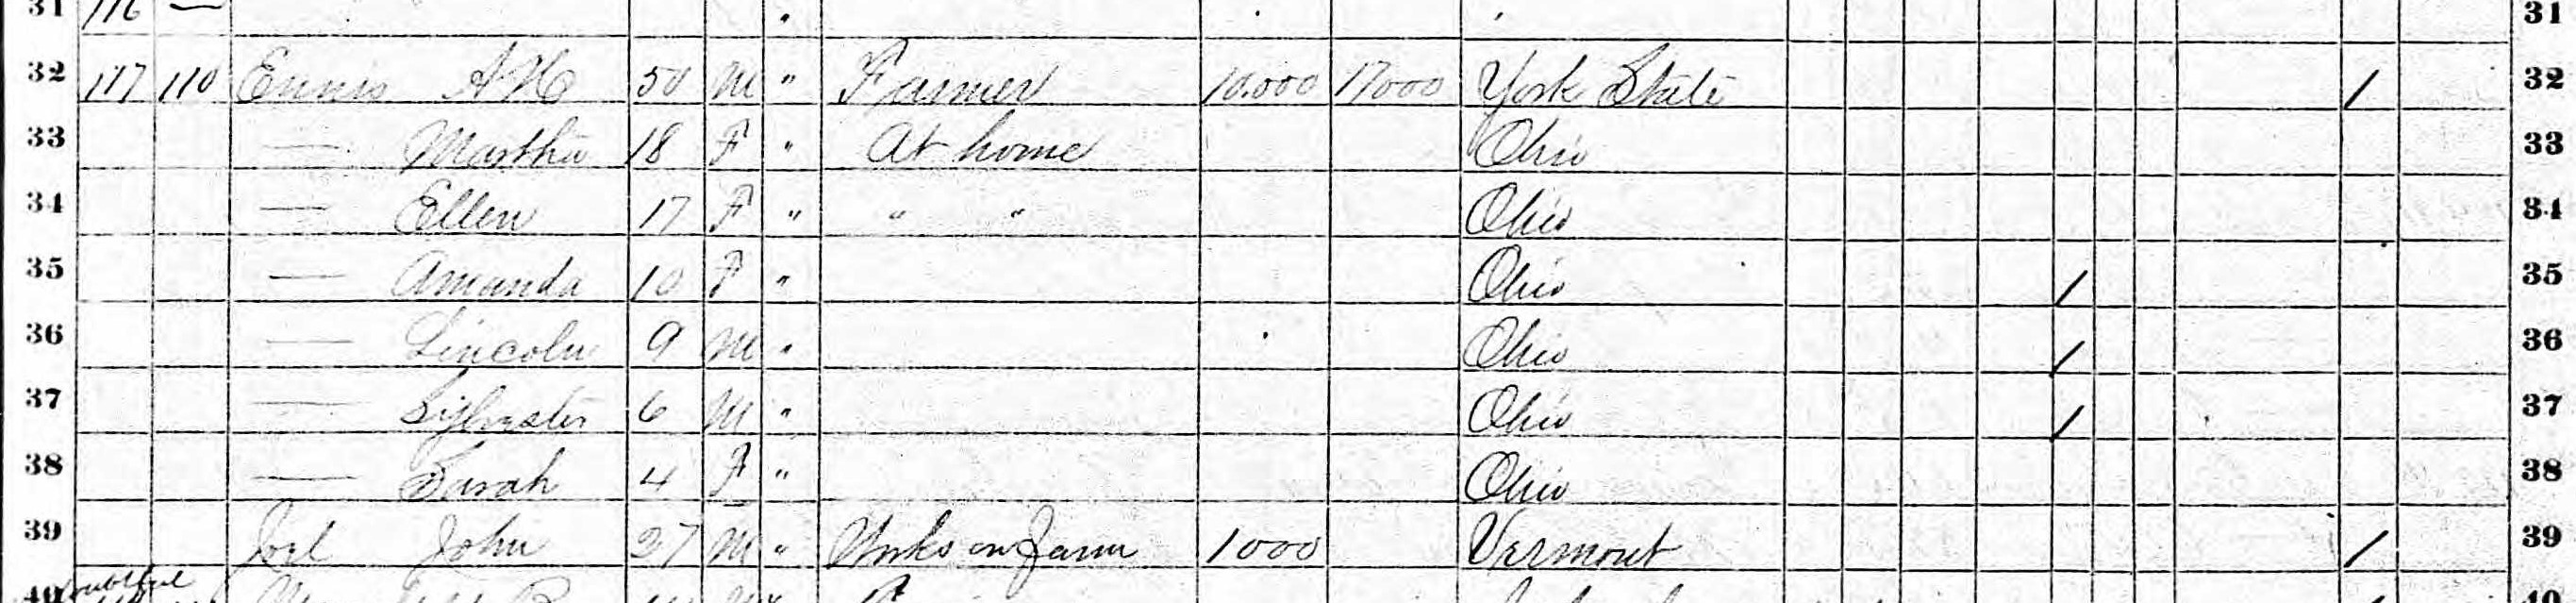 31 116 — " 31
32 117 110 Ennis A H 50 M " Farmer 10.000 17000 York State / 32
33 — Martha 18 F " At home Ohio 33
34 — Ellen 17 F " " " Ohio 34
35 — Amanda 10 F " Ohio / 35
36 — Lincoln 9 M " Ohio / 36
37 — Sylvester 6 M " Ohio / 37
38 — Sarah 4 F " Ohio 38
39 John 27 M " Works on Farm 1000 Vermont / 39
40 40